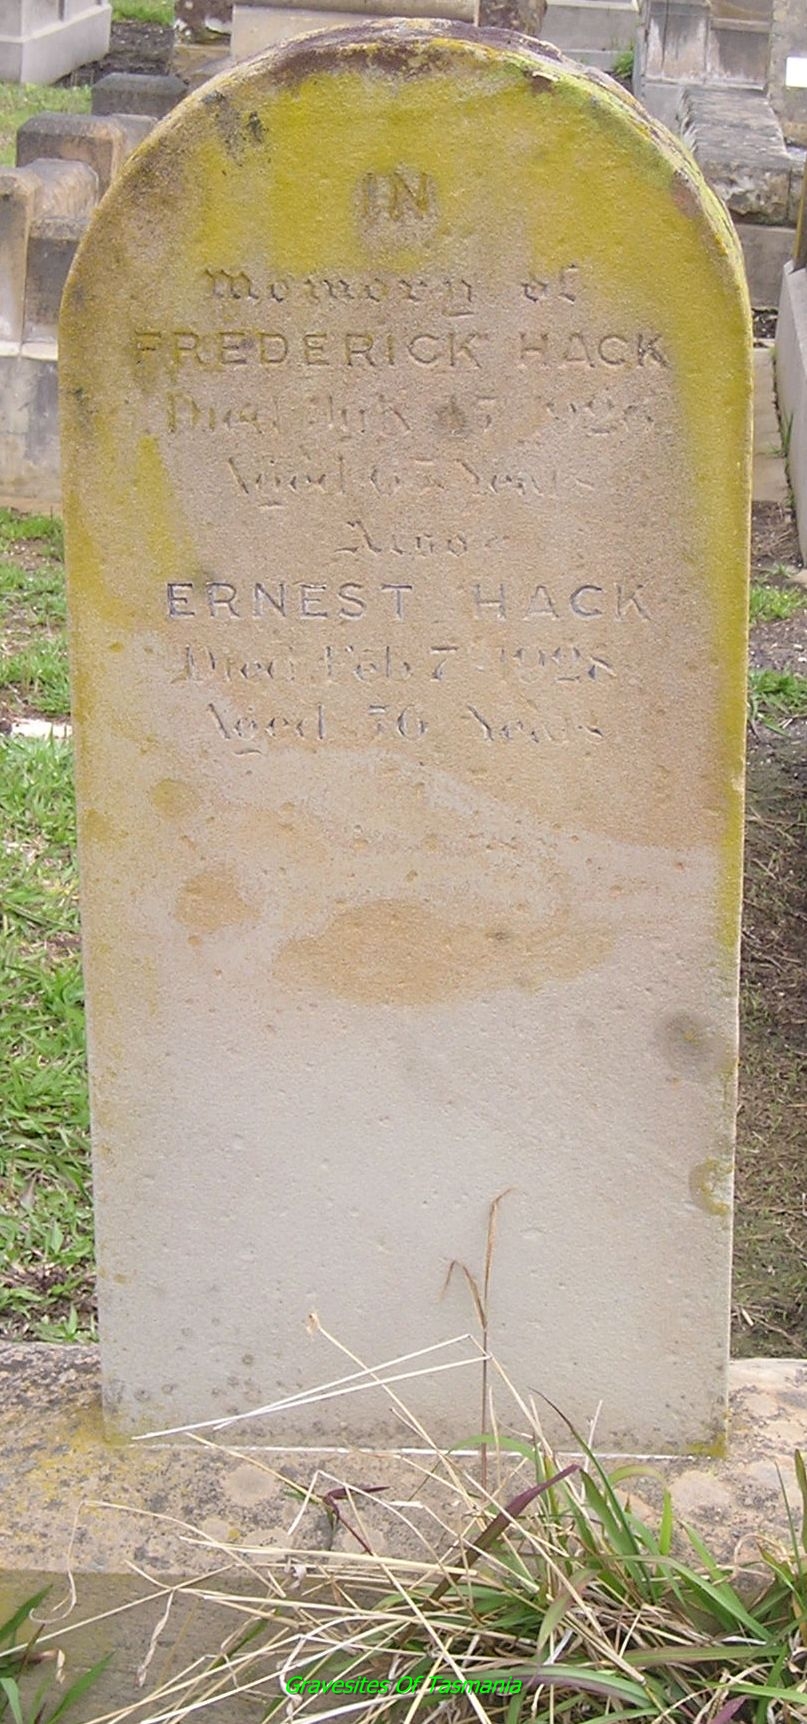 IN
Memory of
FREDERICK HACK
Died July
Aged Years
Also
ERNEST HACK
Died Feb 7 1928
Aged Years
Gravesites Of Tasmania